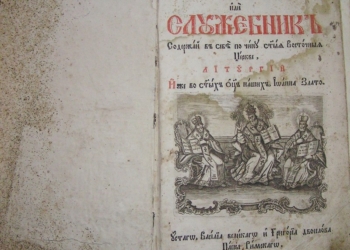 или
СЛУЖЕБНИКЪ
Содержай въ себѣ по чину стыѧ Восточныѧ
Цркви
ЛІТУРГІИ
Иже во стыхъ
Ѳ҃цъ нашихъ Іѡанна Злато-
оустагѡ, Васілїа великагѡ и Григорїа двоеслова
Папы Римскагѡ.